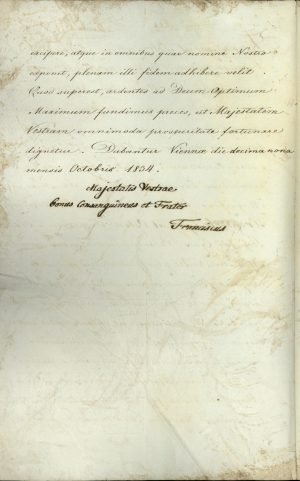 excipere, atque in omnibus quae nomine Nostro
exponet, plenam illi fidem adhibere velit.
Quod superest, ardentes ad Deum Optimum
Maximum fundimus preces, ut Majestatem
Vestram omnimoda prosperitate fortunare
dignetur. Dabantur Viennae die decima nona
mensis Octobris 1834.
Majestatis Vestrae
bonus Consanguineus et Frater
Franciscus